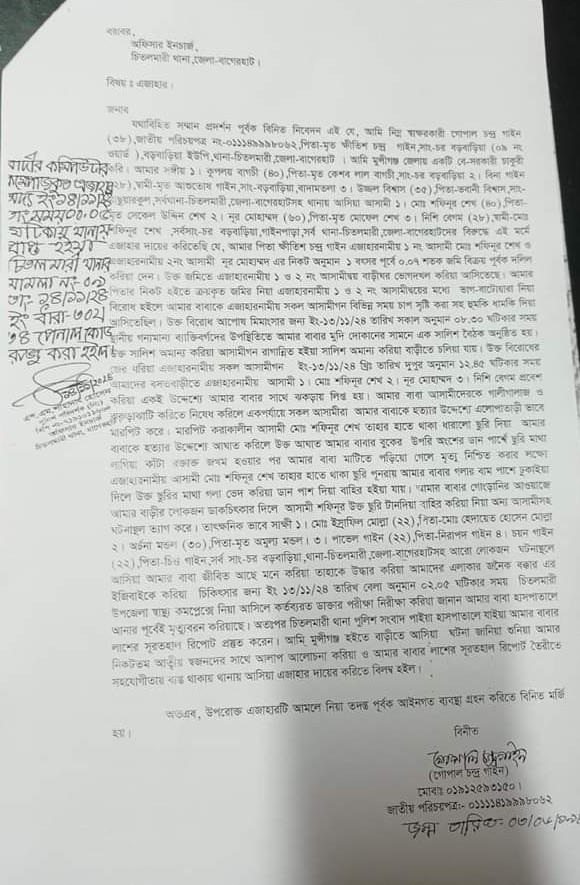 বরাবর,
অফিসার ইনচার্জ,
চিতলমারী থানা,জেলা-বাগেরহাট।
বিষয় ঃ এজাহার।
জনাব
যথাবিহিত সম্মান প্রদর্শন পূর্বক বিনিত নিবেদন এই যে, আমি নিম্ন স্বাক্ষরকারী গোপাল চন্দ্র গাইন
(৩৮),জাতীয় পরিচয়পত্র নং-০১১১৪১৯৯৯৮০৬২,পিতা-মৃত ক্ষীতিশ চন্দ্র গাইন,সাং-চর বড়বাড়িয়া (০৯ নং
ওয়ার্ড ),বড়বাড়িয়া ইউপি,থানা-চিতলমারী,জেলা-বাগেরহাট । আমি মুন্সীগঞ্জ জেলায় একটি বে-সরকারী চাকুরী
করি। আমার সঙ্গীয় ১। কৃপলয় বাগচী (৪০),পিতা-মৃত কেশব লাল বাগচী,সাং-চর বড়বাড়িয়া ২। বিনা গাইন
(২৮),স্বামী-মৃত আশুতোষ গাইন,সাং-বড়বাড়িয়া,বাদামতলা ৩। উজ্জল বিশ্বাস (৩৫),পিতা-ভবানী বিশ্বাস,সাং-
থানা-চিতলমারী,জেলা-বাগেরহাটসহ থানায় আসিয়া আসামী ১। মোঃ শফিনুর শেখ (৪০),পিতা-
মৃত সেকেল উদ্দিন শেখ ২। নূর মোহাম্মদ (৬০),পিতা-মৃত মোফেল শেখ ৩। নিশি বেগম (২৮),স্বামী-মোঃ
শফিনুর শেখ ,সর্বসাং-চর বড়বাড়িয়া,গাইনপাড়া,সর্ব থানা-চিতলমারী,জেলা-বাগেরহাটদের বিরুদ্ধে এই মর্মে
এজাহার দায়ের করিতেছি যে, আমার পিতা ক্ষীতিশ চন্দ্র গাইন এজাহারনামীয় ১ নং আসামী মোঃ শফিনুর শেখ ও
এজাহারনামীয় ২নং আসামী নূর মোহাম্মদ এর নিকট অনুমান ১ বৎসর পূর্বে ০.০৭ শতক জমি বিক্রয় পূর্বক দলিল
করিয়া দেন। উক্ত জমিতে এজাহারনামীয় ১ ও ২ নং আসামীদ্বয় বাড়ীঘর ভোগদখল করিয়া আসিতেছে। আমার
পিতার নিকট হইতে ক্রয়কৃত জমির নিয়া এজাহারনামীয় ১ ও ২ নং আসামীদ্বয়ের মধ্যে ভাগ-বাটোয়ারা নিয়া
বিরোধ হইলে আমার বাবাকে এজাহারনামীয় সকল আসামীগন বিভিন্ন সময় চাপ সৃষ্টি করা সহ হুমকি ধামকি দিয়া
আসিতেছিল। উক্ত বিরোধ আপোষ মিমাংসার জন্য ইং-১৩/১১/২৪ তারিখ সকাল অনুমান ০৮.৩০ ঘটিকার সময়
স্থানীয় গন্যমান্য ব্যাক্তিবর্গদের উপস্থিতিতে আমার বাবার মুদি দোকানের সামনে এক সালিশ বৈঠক অনুষ্ঠিত হয়।
উক্ত সালিশ অমান্য করিয়া আসামীগন রাগান্নিত হইয়া সালিশ অমান্য করিয়া বাড়ীতে চলিয়া যায়। উক্ত বিরোধের
জের ধরিয়া এজাহারনামীয় সকল আসামীগন ইং-১৩/১১/২৪ খ্রিঃ তারিখ দুপুর অনুমান ১২.৪৫ ঘটিকার সময়
আমাদের বসতবাড়ীতে এজাহারনামীয় আসামী ১। মোঃ শফিনুর শেখ ২। নূর মোহাম্মদ ৩। নিশি বেগম প্রবেশ
করিয়া একই উদ্দেশ্যে আমার বাবার সাথে ঝকড়ায় লিপ্ত হয়। আমার বাবা আসামীদেরকে গালীগালাজ ও
করিতে নিষেধ করিলে একপর্যায়ে সকল আসামীরা আমার বাবাকে হত্যার উদ্দেশ্যে এলোপাতাড়ী ভাবে
মারপিট করে। মারপিট করাকালীন আসামী মোঃ শফিনুর শেখ তাহার হাতে থাকা ধারালো ছুরি দিয়া আমার
বাবাকে হত্যার উদ্দেশ্যে আঘাত করিলে উক্ত আঘাত আমার বাবার বুকের উপরি অংশের ডান পার্শ্বে ছুরি মাথা
লাগিয়া কাঁটা রক্তাক্ত জখম হওয়ার পর আমার বাবা মাটিতে পড়িয়ো গেলে মৃত্যু নিশ্চিত করার লক্ষ্যে
এজাহারনামীয় আসামী মোঃ শফিনুর শেখ তাহার হাতে থাকা ছুরি পূনরায় আমার বাবার গলার বাম পাশে ঢুকাইয়া
দিলে উক্ত ছুরির মাথা গলা ভেদ করিয়া ডান পাশ দিয়া বাহির হইয়া যায়। আমার বাবার গোংড়ানির আওয়াজে
আমার বাড়ীর লোকজন ডাকচিৎকার দিলে আসামী শফিনুর উক্ত ছুরি টানদিয়া বাহির করিয়া নিয়া অন্য আসামীসহ
ঘটনাস্থল ত্যাগ করে। তাৎক্ষনিক ভাবে সাক্ষী ১। মোঃ ইস্রাফিল মোল্লা (২২),পিতা-মোঃ হেদায়েত হোসেন মোল্লা
২। অর্চনা মন্ডল (৩০),পিতা-মৃত অমূল্য মন্ডল। ৩। পাভেল গাইন (২২),পিতা-নিরাপদ গাইন ৪। চয়ন গাইন
(২২),পিতা-চিত্ত গাইন,সর্ব সাং-চর বড়বাড়িয়া,থানা-চিতলমারী,জেলা-বাগেরহাটসহ আরো লোকজন ঘটনাস্থলে
আসিয়া আমার বাবা জীবিত আছে মনে করিয়া তাহাকে উদ্ধার করিয়া আমাদের এলাকার জনৈক বক্কার এর
ইজিবাইকে করিয়া চিকিৎসার জন্য ইং ১৩/১১/২৪ তারিখ বেলা অনুমান ০২.০৫ ঘটিকার সময় চিতলমারী
উপজেলা স্বাস্থ্য কমপ্লেক্সে নিয়া আসিলে কর্তব্যরত ডাক্তার পরীক্ষা নিরীক্ষা করিয়া জানান আমার বাবা হাসপাতালে
আনার পূর্বেই মৃত্যুবরন করিয়াছে। অতঃপর চিতলমারী থানা পুলিশ সংবাদ পাইয়া হাসপাতালে যাইয়া আমার বাবার
লাশের সূরতহাল রিপোর্ট প্রস্তুত করেন। আমি মুন্সীগঞ্জ হইতে বাড়ীতে আসিয়া ঘটনা জানিয়া শুনিয়া আমার
নিকটতম আত্মীয় স্বজনদের সাথে আলাপ আলোচনা করিয়া ও আমার বাবার লাশের সূরতহাল রিপোর্ট তৈরীতে
সহযোগীতায় ব্যস্ত থাকায় থানায় আসিয়া এজাহার দায়ের করিতে বিলম্ব হইল।
অতএব, উপরোক্ত এজাহারটি আমলে নিয়া তদন্ত পূর্বক আইনগত ব্যবস্থা গ্রহন করিতে বিনিত মর্জি
হয়।
বাদীর কম্পিউটার
কম্পোজকৃত এজাহার
অদ্য ইং ১৪/১১/২৪
তাং সময় ০০.০৫
ঘটিকায় থানায়
প্রাপ্ত হইয়া
চিতলমারী থানার
মামলা নং-০৯
তাং ১৪/১১/২৪
ইং ধারা-৩০২/
৩৪ পেনাল কোড
রুজু করা হইল।
বিনীত
গোপাল চন্দ্র গাইন
(গোপাল চন্দ্র গাইন)
মোবাঃ ০১৯১২৫৯৩১৫০।
জাতীয় পরিচয়পত্র:- ০১১১১৪১৯৯৯৮০৬২
জন্ম তারিখ- ০৩/০৫/